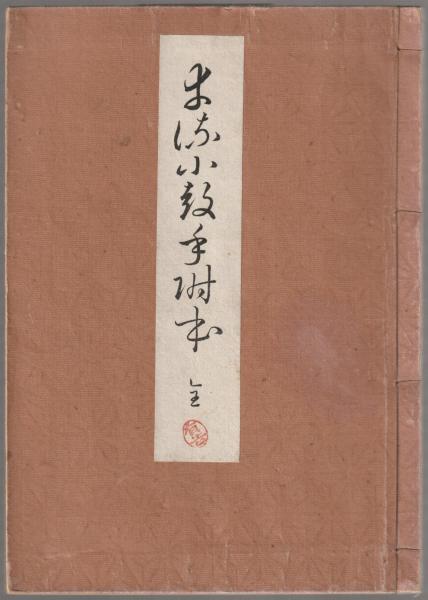 幸流小鼓手附本
全